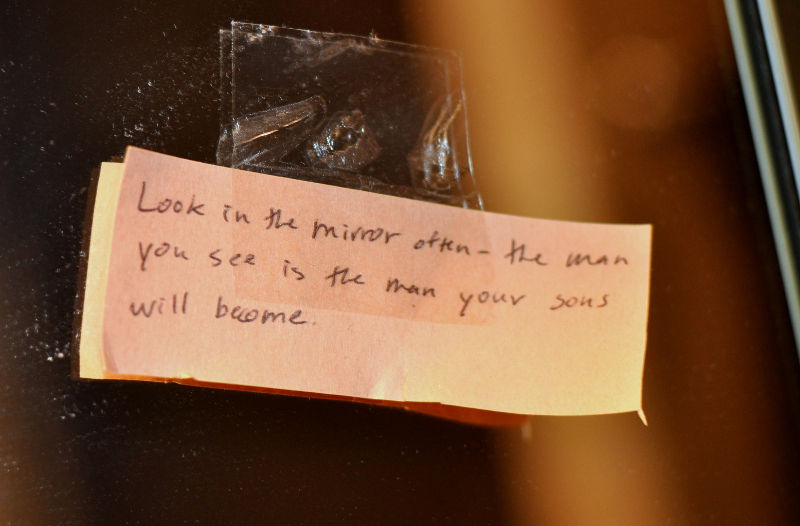 Look in the mirror often - the man
you see is the man your sons
will become.